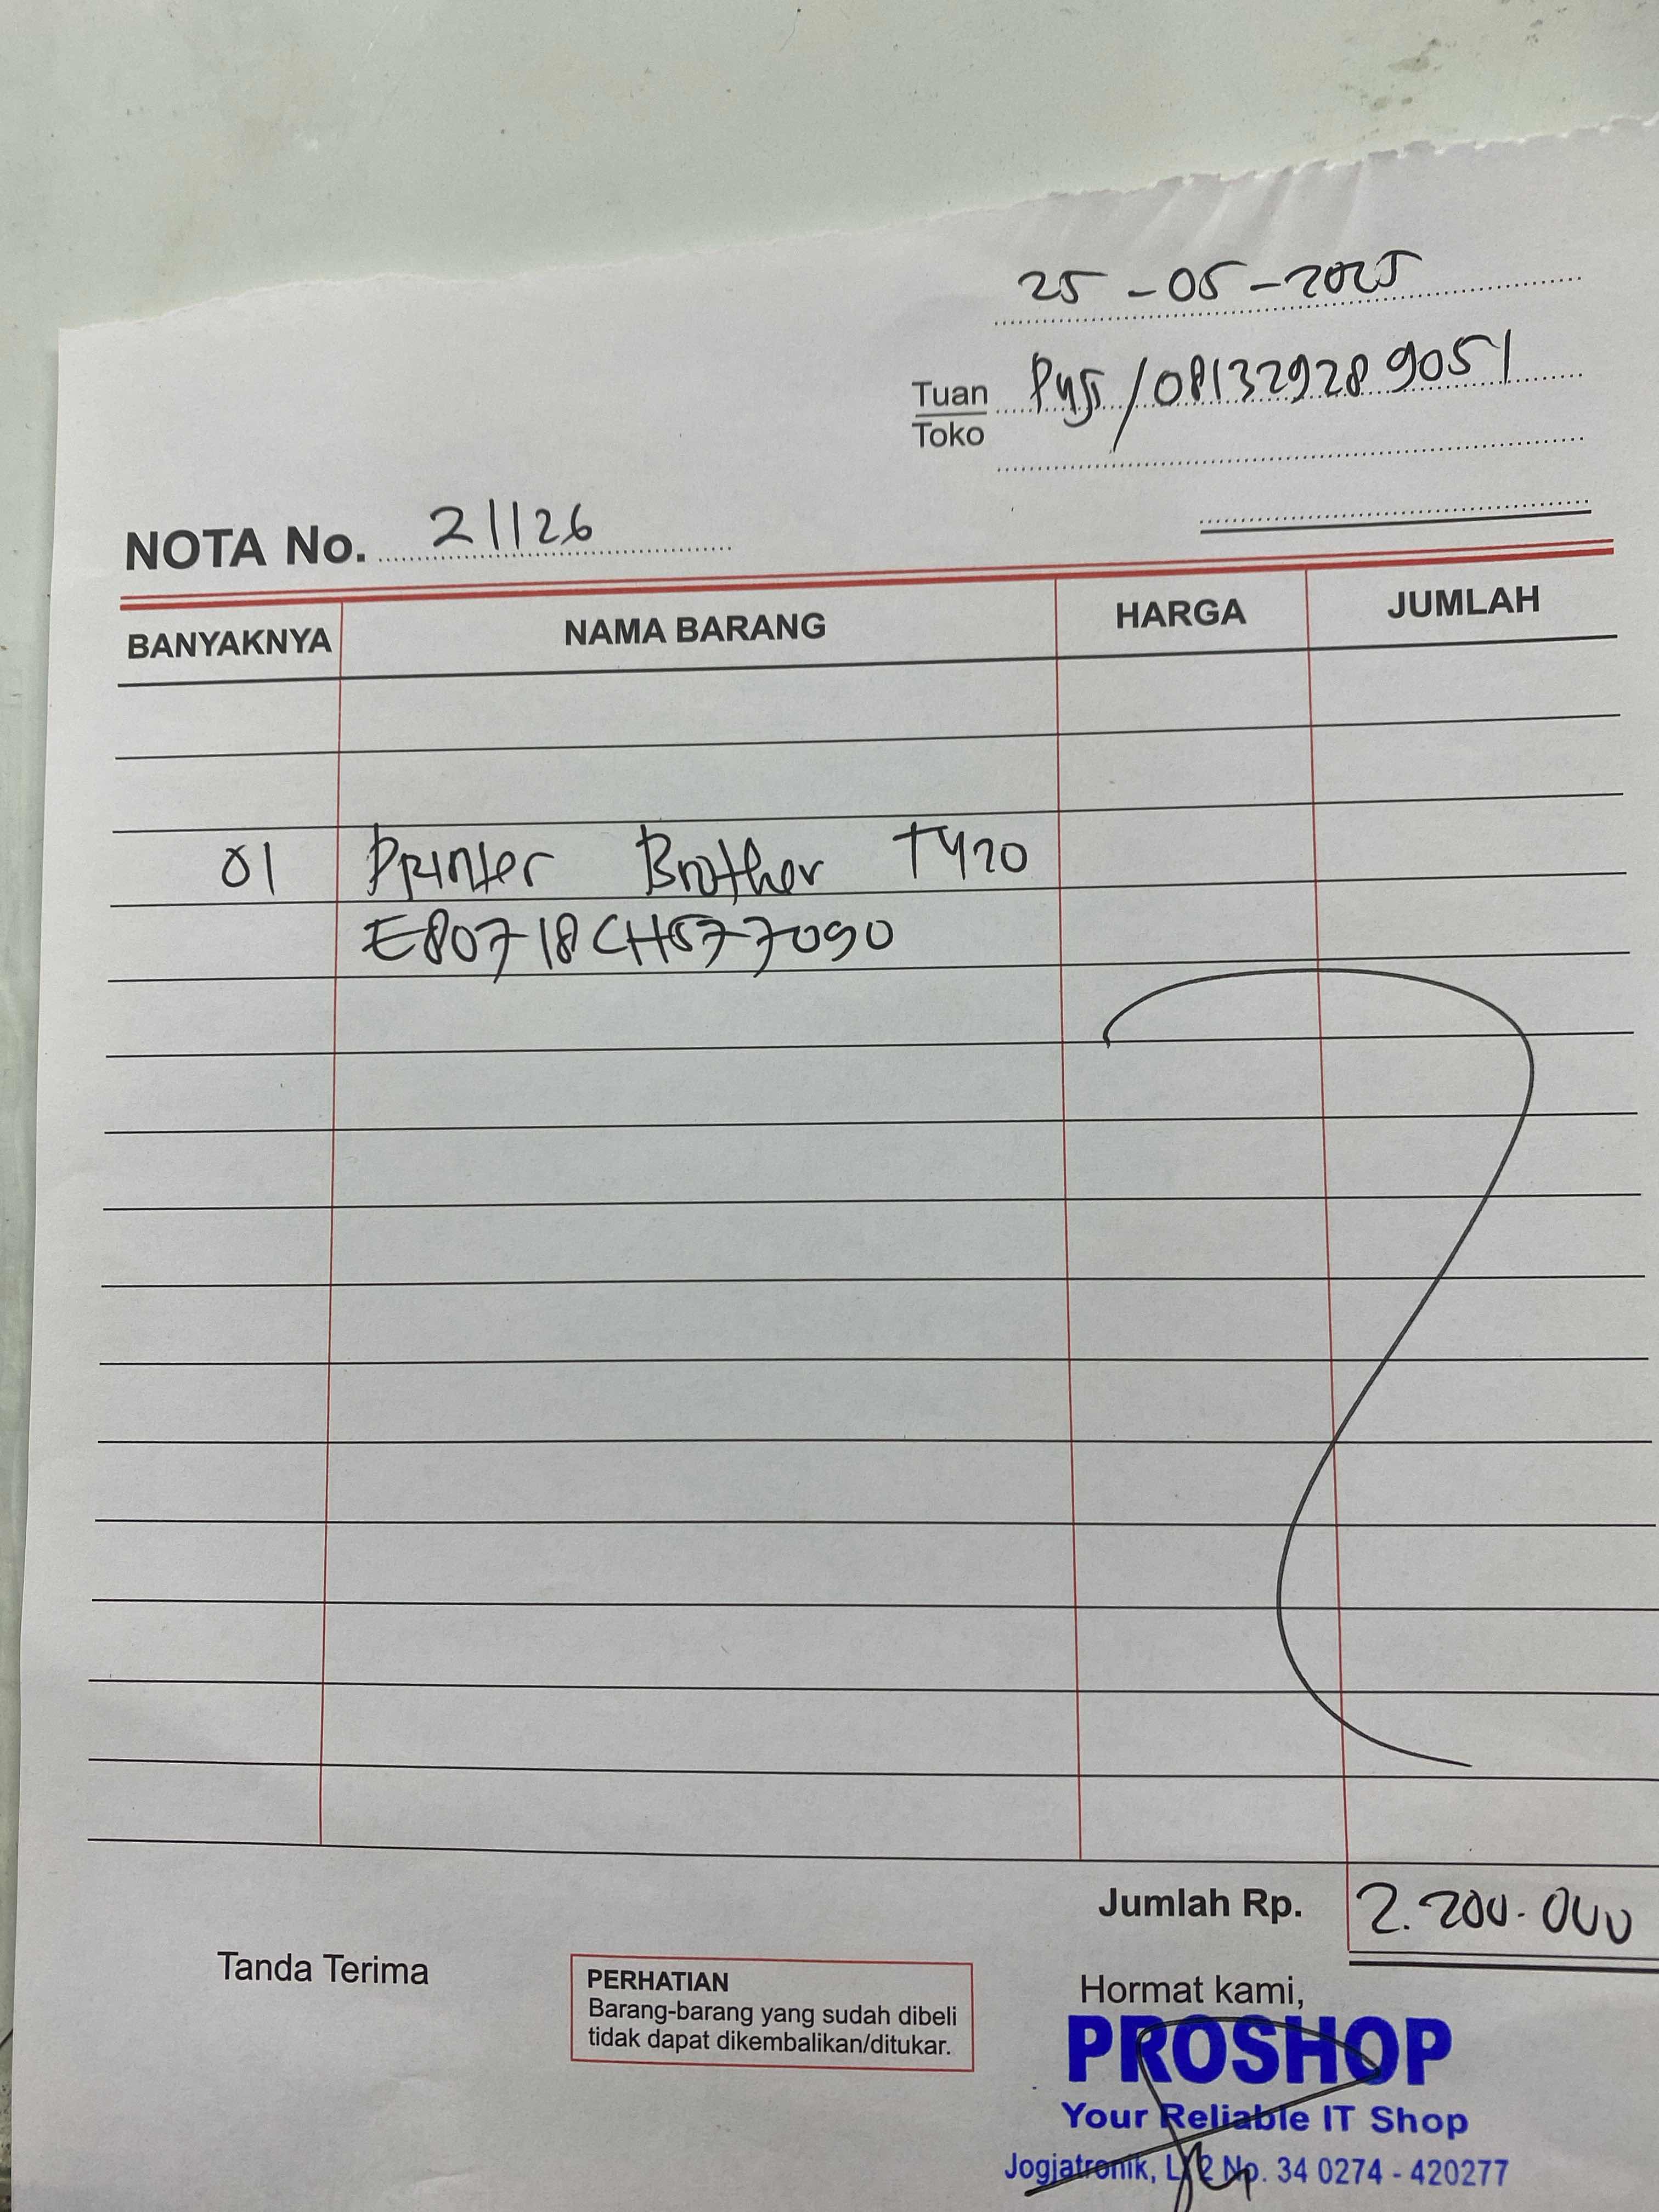 25-05-2025
Tuan Puji/081329289051
Toko
NOTA No. 21126
BANYAKNYA NAMA BARANG HARGA JUMLAH
01 Printer Brother T420
E80718CH577090
Jumlah Rp. 2.200.000
Tanda Terima
PERHATIAN
Barang-barang yang sudah dibeli
tidak dapat dikembalikan/ditukar.
Hormat kami,
PROSHOP
Your Reliable IT Shop
Jogjatronik, Lt 2 No. 34 0274 - 420277